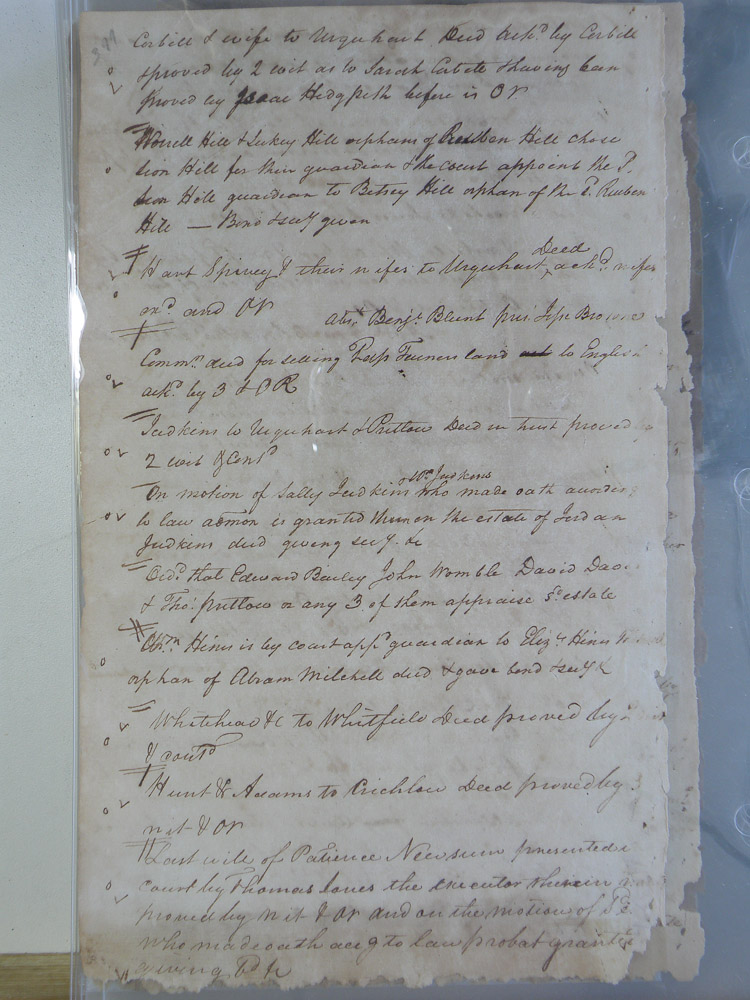 Corbill & wife to Urquhart Deed ackd. by Corbill
& proved by 2 wit as to Sarah Corbill & having been
proved by Isaac Hedgpeth before is OR
Worrell Hill & Luckey Hill orphans of Reuben Hill chose
Lion Hill for their guardian & the court appoint the sd.
Lion Hill guardian to Betsey Hill orphan of the sd. Reuben
Hill — Bond & secy given
Hart Spivey & their wifes to Urquhart Deed ackd.
and OR
abs. Benjn. Blunt pres. Jesse Browne
Comms. deed for selling Turners land to English
ackd. by 3 & OR
Judkins to Urquhart & Pretlow Deed in trust proved
2 wit & contd
On motion of Sally Judkins & Wm. Judkins who made oath accordg
to law admon is granted them on the estate of Jordan
Judkins decd giving secy &c
Ordd. that Edward Bailey John Womble David Dav
& Thos. Pretlow or any 3 of them appraise sd. estate
Hines is by court appd guardian to Elizh. Hines
orphan of Abram Mitchell decd & gave bond & secy &c
Whitehead &c to Whitfield Deed proved by
& contd
Hunt & Adams to Crichlow Deed proved by
wit & OR
Last will of Patience Newsum presented in
court by Thomas Jones the executor therein
proved by wit & OR and on the motion of sd.
who made oath accg to law probat granted
giving Bd &c